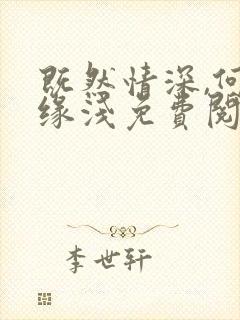 既然情深,何
缘浅免费阅
李世轩